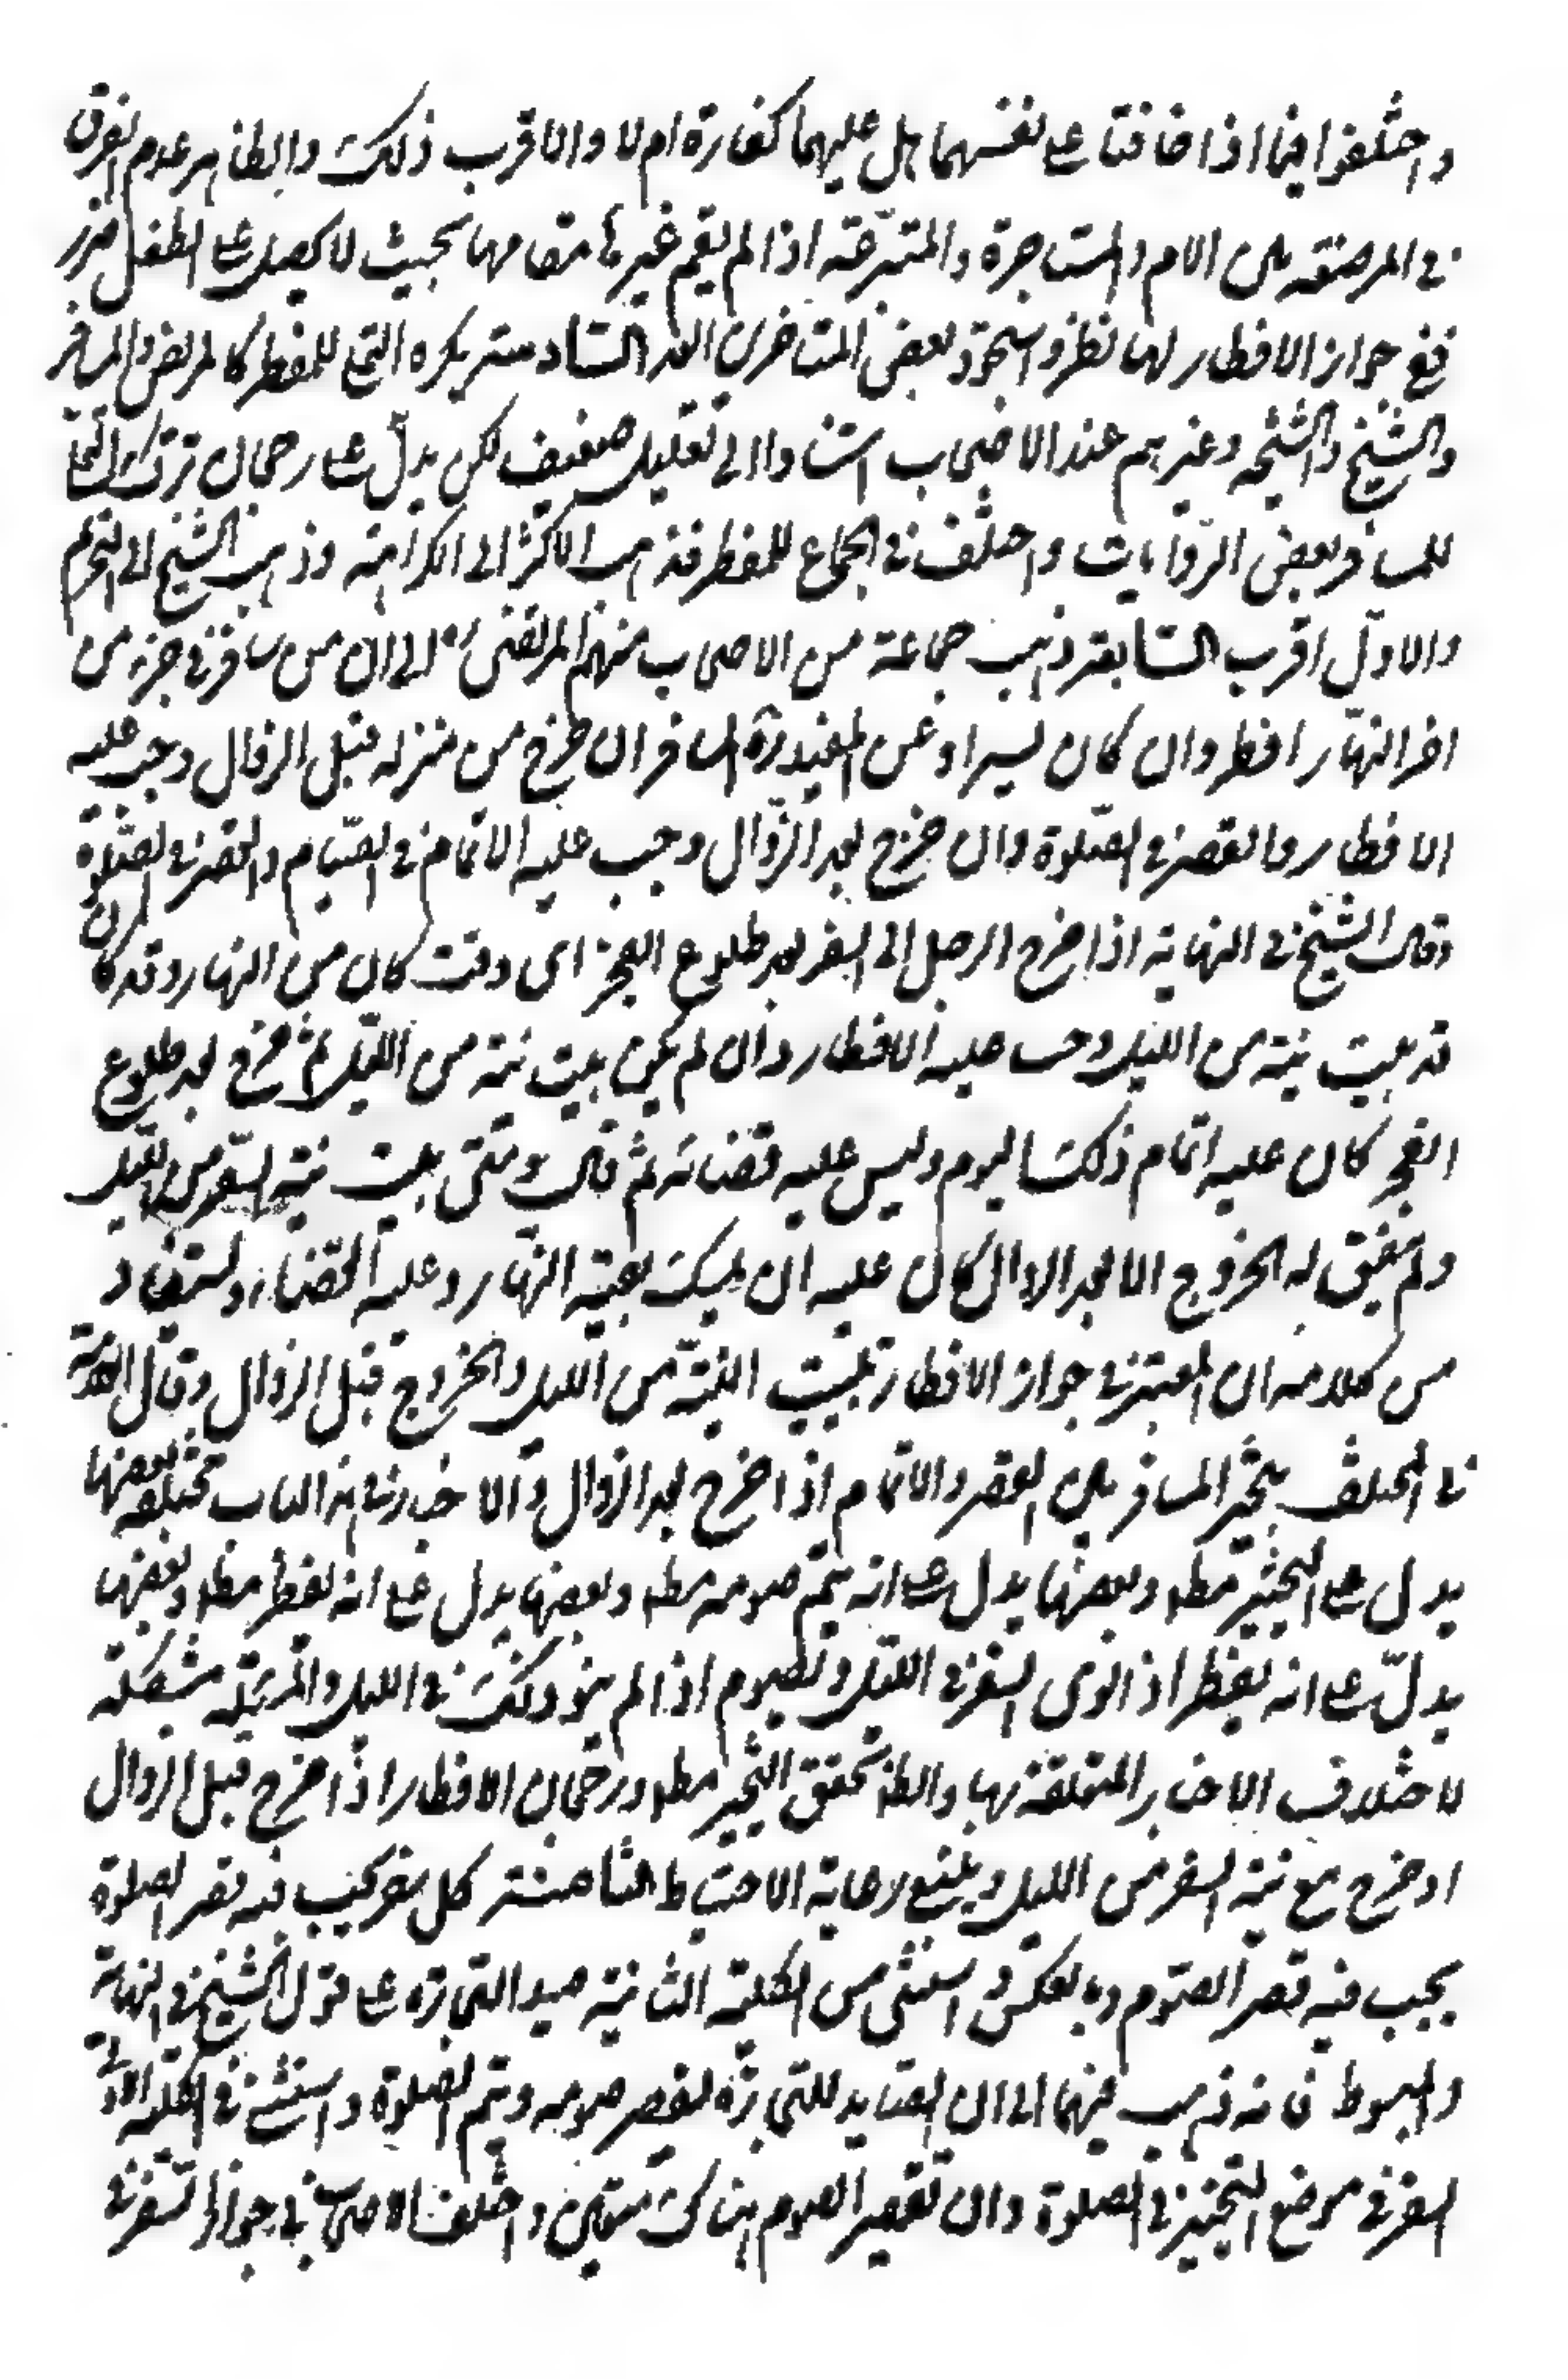 واختلفوا فيما اذا خافتا على نفسهما هل عليهما كفارة ام لا والاقرب ذلك والظاهر عدم الفرق
في المرضعة بين الام والمستاجرة والمتبرعة اذا لم يقم غيرها مقامها بحيث لا يحصل على الطفل ضرر
ففي جواز الافطار لها نظر وجوز بعض المتاخرين العدم السادسة يكره التملي للمفطر كالمريض والمسافر
والشيخ والشيخة وغيرهم عند الاصحاب استنادا الى تعليل ضعيف لكن يدل على رجحان ترك التملي
للمسافر بعض الروايات واختلف في الجماع للمفطر فذهب الاكثر الى الكراهة وذهب الشيخ الى التحريم
والاول اقرب السابعة ذهب جماعة من الاصحاب منهم المرتضى ره الى ان من سافر في جزء من
اخر النهار افطر وان كان يسيرا وعن المفيد ره المسافر ان خرج من منزله قبل الزوال وجب عليه
الافطار والقصر في الصلوة وان خرج بعد الزوال وجب عليه الاتمام في الصيام والقصر في الصلوة
وقال الشيخ في النهاية اذا خرج الرجل الى السفر بعد طلوع الفجر اى وقت كان من النهار وقد كان
قد بيت نيته من الليل وجب عليه الافطار وان لم يكن بيت نيته من الليل ثم خرج بعد طلوع
الفجر كان عليه اتمام ذلك اليوم وليس عليه قضائه ثم قال ومتى بيت نية السفر من الليل
ولم يتفق له الخروج الا بعد الزوال كان عليه ان يمسك بقية النهار وعليه القضاء ويستفاد
من كلامه ان المعتبر في جواز الافطار تبييت النية من الليل والخروج قبل الزوال وقال العلامة
في المختلف يتخير المسافر بين القصر والاتمام اذا خرج بعد الزوال والاخبار في هذا الباب مختلفة بعضها
يدل على التخيير مطلقا وبعضها يدل على انه يتم صومه مطلقا وبعضها يدل على انه يفطر مطلقا وبعضها
يدل على انه يفطر اذا نوى السفر في الليل ويصوم اذا لم ينو ذلك في الليل والمسئلة مشكلة
لاختلاف الاخبار المتعلقة بها والظاهر تحقق التخيير مطلقا ورجحان الافطار اذا خرج قبل الزوال
او خرج مع نية السفر من الليل وينبغي رعاية الاحتياط الثامنة كل سفر يجب فيه قصر الصلوة
يجب فيه قصر الصوم وبالعكس واستثنى من الكلية الثانية صيد التجارة على قول الشيخ في النهاية
والمبسوط فانه ذهب فيهما الى ان الصايد للتجارة يقصر صومه ويتم الصلوة واستثنى في الكلية الاولى
السفر في مواضع التخيير في الصلوة وان تقصير الصوم هناك متعين واختلف الاصحاب في جواز السفر في